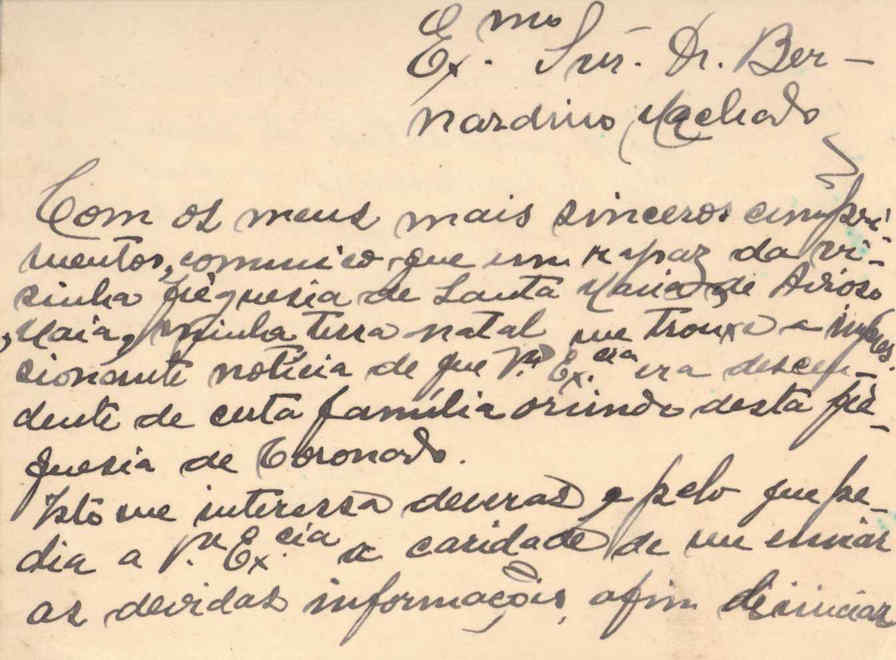 Ex.mo Snr. Dr. Ber-
nardino Machado
Com os meus mais sinceros cumpri-
mentos, comunico que um rapaz da vi-
sinha fréguesia de Santa Maria de Avioso
, Maia, minha terra natal me trouxe a impres-
sionante notícia de que V.a Ex.cia era descen-
dente de certa família oriunda desta fré-
guesia de Coronado.
Isto me interessa deveras e pelo que pe-
dia a V.a Ex.cia a caridade de me enviar
as devidas informações, afim de iniciar